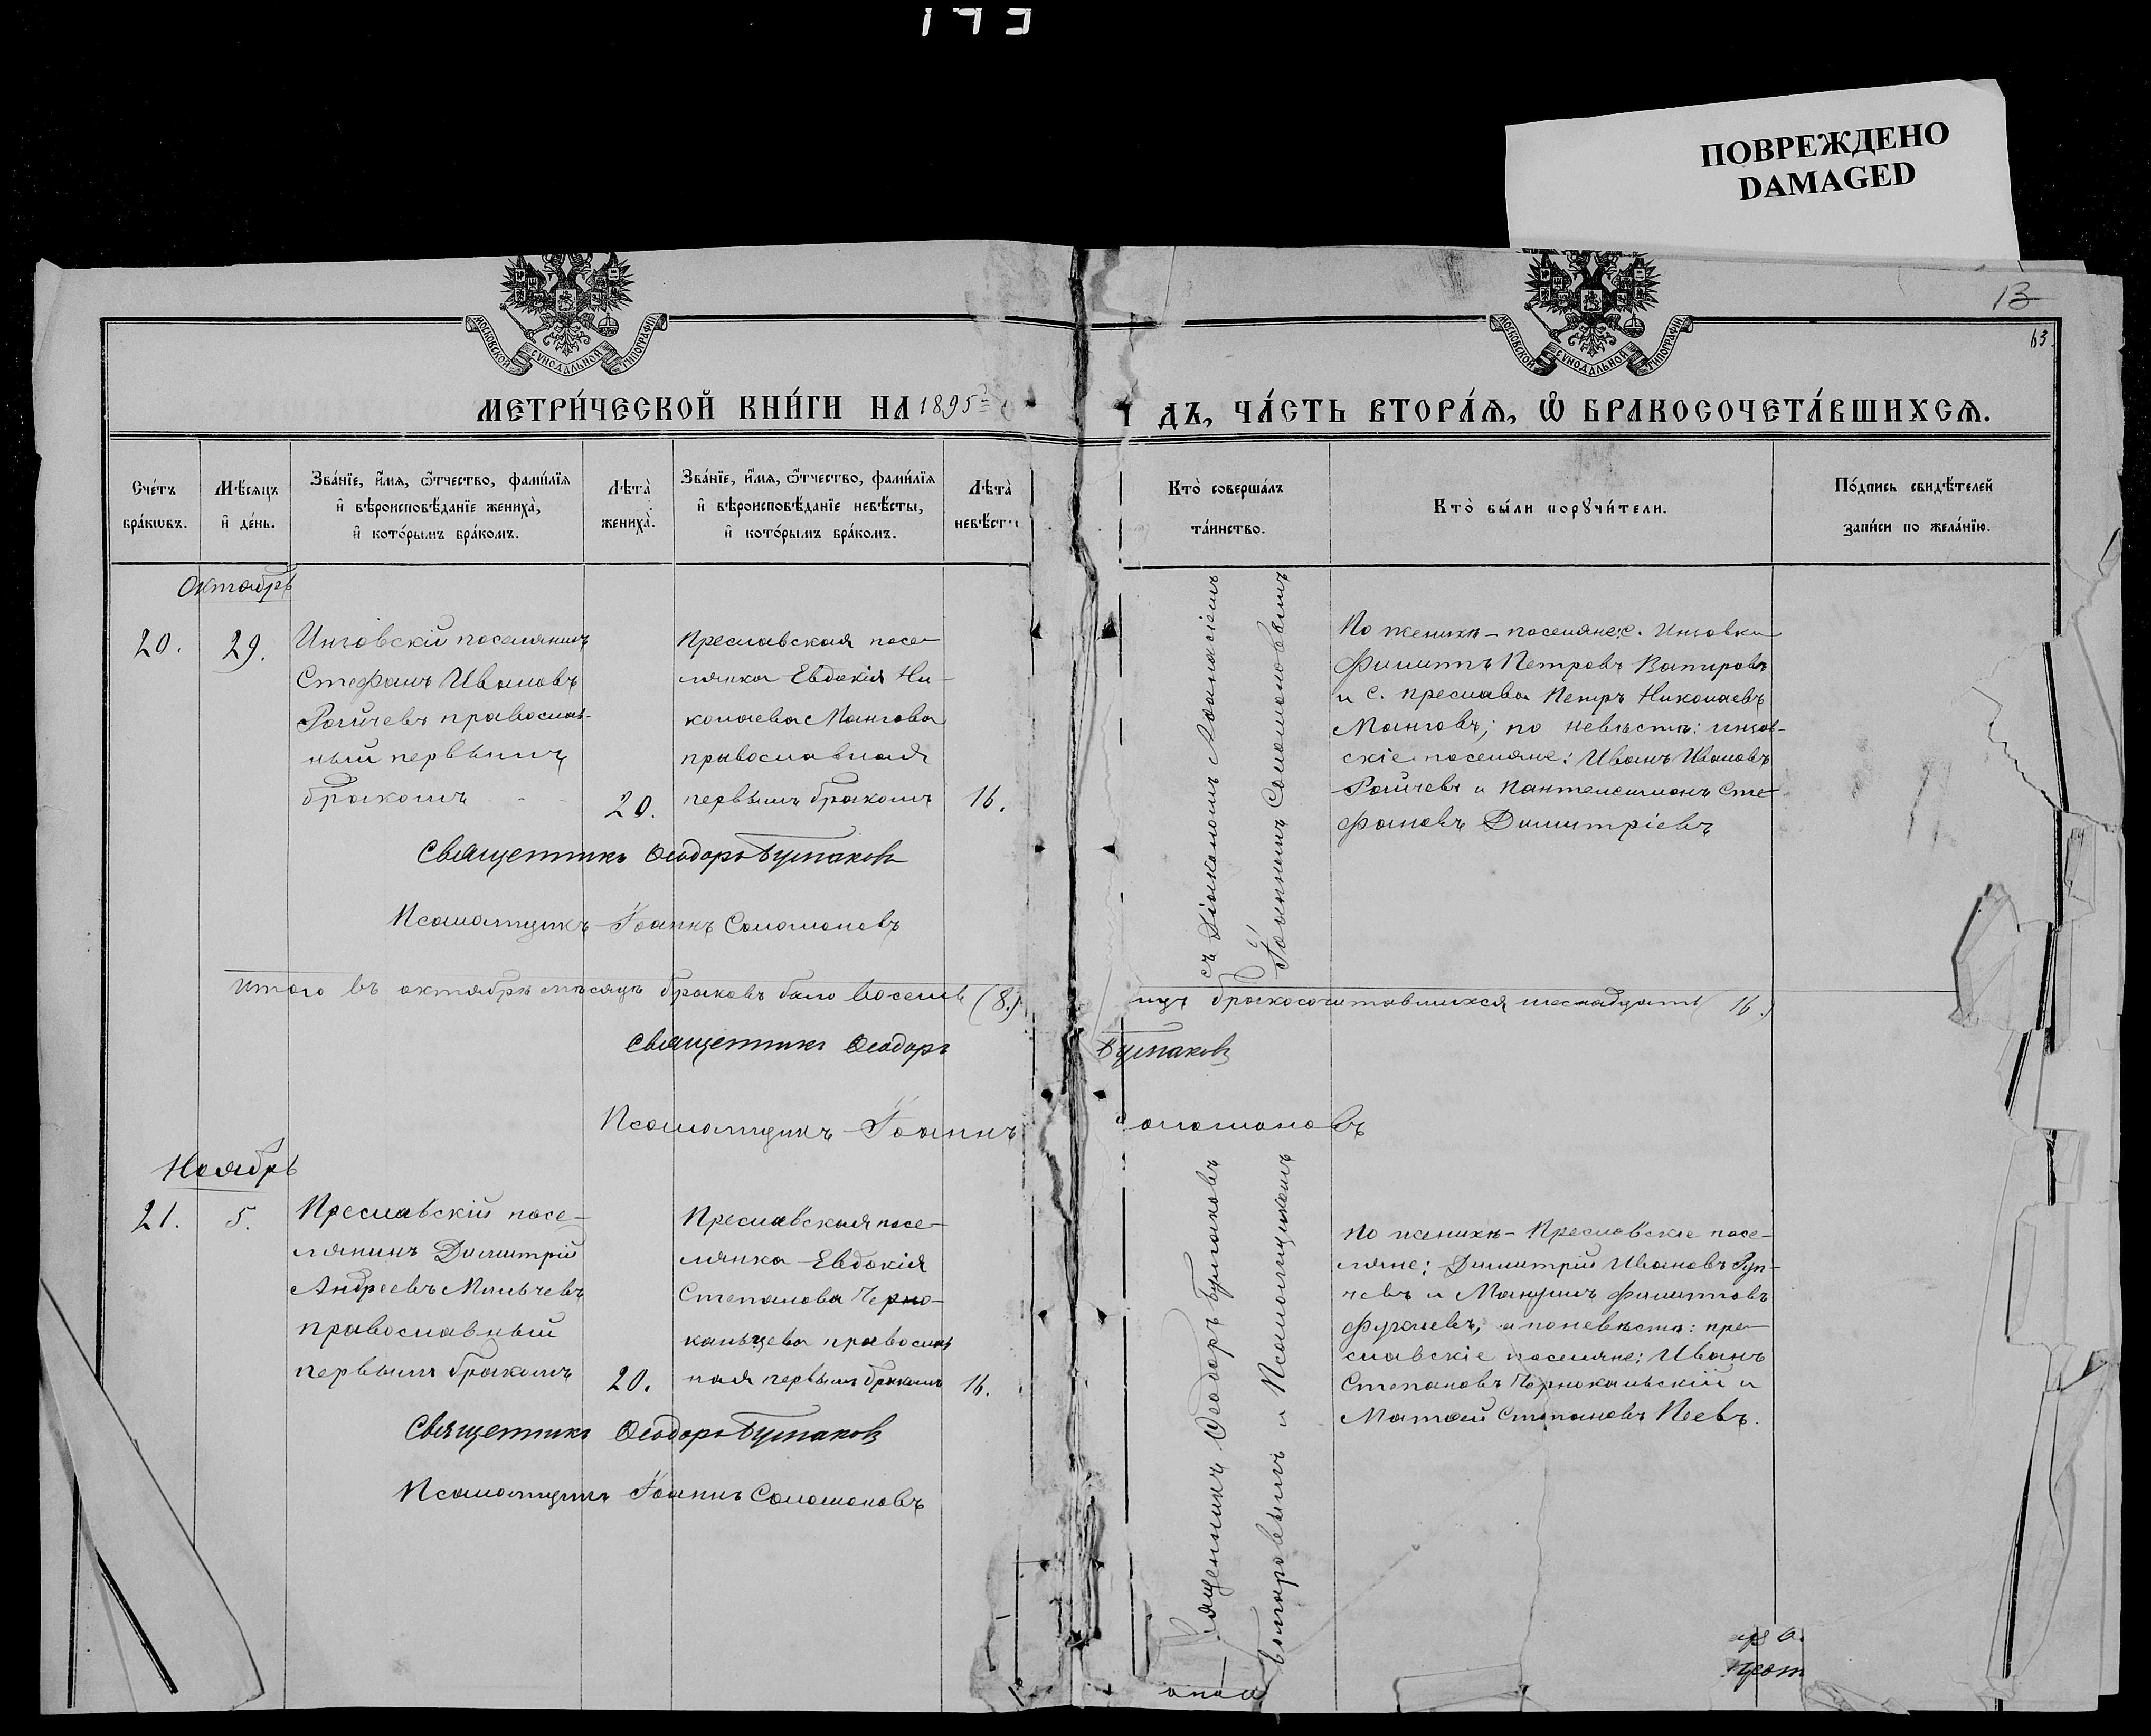 173
ПОВРЕЖДЕНО
DAMAGED
13
63.
МОСКОВСКОЙ СѴНОДАЛЬНОЙ ТИПОГРАФІИ
МОСКОВСКОЙ СѴНОДАЛЬНОЙ ТИПОГРАФІИ
МЕТРИ́ЧЕСКОЙ КНИ́ГИ НА 1895
ДЪ, ЧА́СТЬ ВТОРА́Ѧ, Ѡ҆ БРАКОСОЧЕТА́ВШИХСѦ.
Сче́тъ
бра́кѡвъ.
Мѣ́сяцъ
и҆ де́нь.
Зва́нїе, и҆́мѧ, ѻ҆́тчество, фами́лїѧ
и҆ вѣроисповѣ́данїе жениха̀,
и҆ кото́рымъ бра́комъ.
Лѣта̀
жениха̀.
Зва́нїе, и҆́мѧ, ѻ҆́тчество, фами́лїѧ
и҆ вѣроисповѣ́данїе невѣ́сты,
и҆ кото́рымъ бра́комъ.
Лѣта̀
невѣ́ст
Кто̀ соверша́лъ
та́инство.
Кто̀ бы́ли порꙋчи́тели.
По́дпись свидѣ́телей
за́писи по жела́нїю.
Октябрь
20.
29.
Инзовскій поселянинъ
Стефанъ Ивановъ
Райчевъ православ-
ный первымъ
бракомъ
20.
Преславская посе-
лянка Евдокія Ни-
колаева Мангова
православная
первымъ бракомъ
16.
съ Діакономъ Аѳанасіемъ
Іоанномъ Соломоновымъ
По женихѣ - поселяне: с. Инзовки
Филиппъ Петровъ Вапировъ
и с. Преслава Петръ Николаевъ
Манговъ; по невѣстѣ: инзов-
скіе поселяне: Иванъ Ивановъ
Райчевъ и Пантелеимонъ Сте-
фановъ Димитріевъ
Священникъ Ѳеодоръ Булгаковъ
Псаломщикъ Іоаннъ Соломоновъ
Итого въ октябрѣ мѣсяцѣ браковъ было восемь (8.)
лицъ бракосочитавшихся шеснадцать (16.)
Священникъ Ѳеодоръ Булгаковъ
Псаломщикъ Іоаннъ оломоновъ
Ноябрь
21.
5.
Преславскій посе-
лянинъ Димитрій
Андреевъ Мильчевъ
православный
первымъ бракомъ
20.
Преславская посе-
лянка Евдокія
Степанова Черно-
кальцева православ
ная первымъ бракомъ
16.
Священникъ Ѳеодоръ Булгаковъ
и Псаломщикомъ
По женихѣ - Преславскіе посе-
ляне: Димитрій Ивановъ
чевъ и Филипповъ
а по невѣстѣ: пре-
славскіе поселяне: Иванъ
Степановъ Чернокальскій и
Матѳей Степановъ Пеевъ.
Священникъ Ѳеодоръ Булгаковъ
Псаломщикъ Іоаннъ Соломоновъ